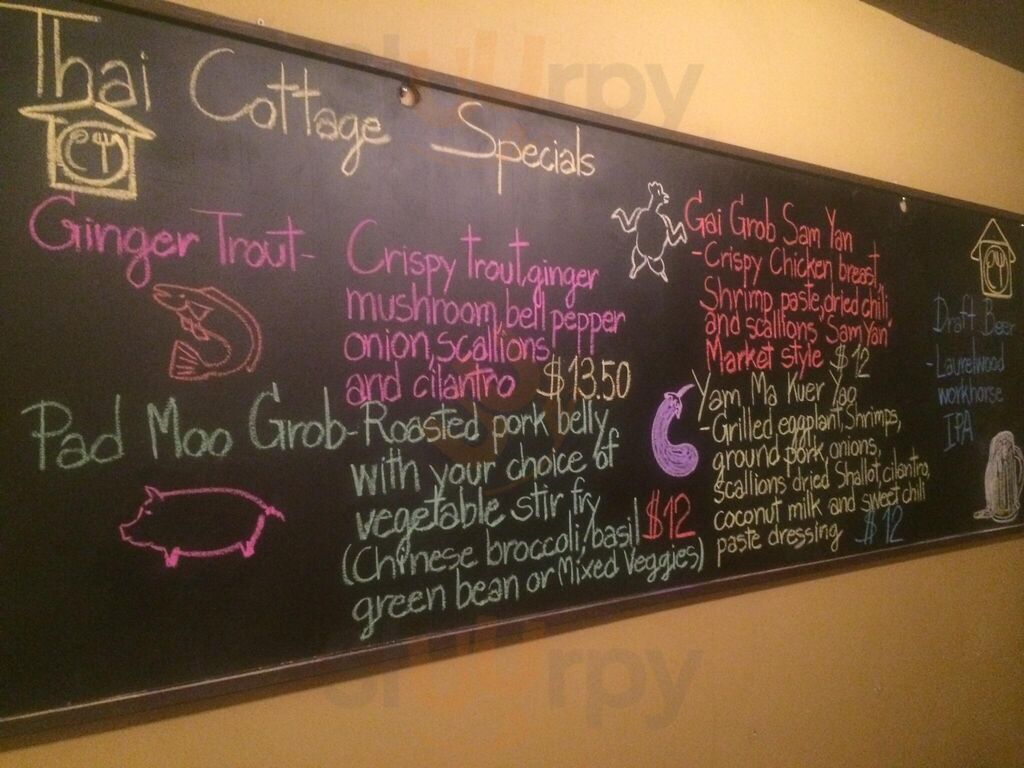 Thai Cottage Specials
Ginger Trout-
Crispy trout, ginger
mushroom, bell pepper
onion, scallions
and cilantro $13.50
Pad Moo Grob-Roasted pork belly
with your choice of
vegetable stir fry
(Chinese broccoli, basil $12
green bean or Mixed Veggies)
Gai Grob Sam Yan
-Crispy Chicken breast,
Shrimp paste, dried chili
and scallions Sam Yan
Market style $12
Yam Ma Kuer Yao
-Grilled eggplant, Shrimps,
ground pork, onions,
scallions dried Shallot, cilantro,
coconut milk and sweet chili
paste dressing $12
Draft Beer
-Laurelwood
workhorse
IPA
slurpy
slurpy